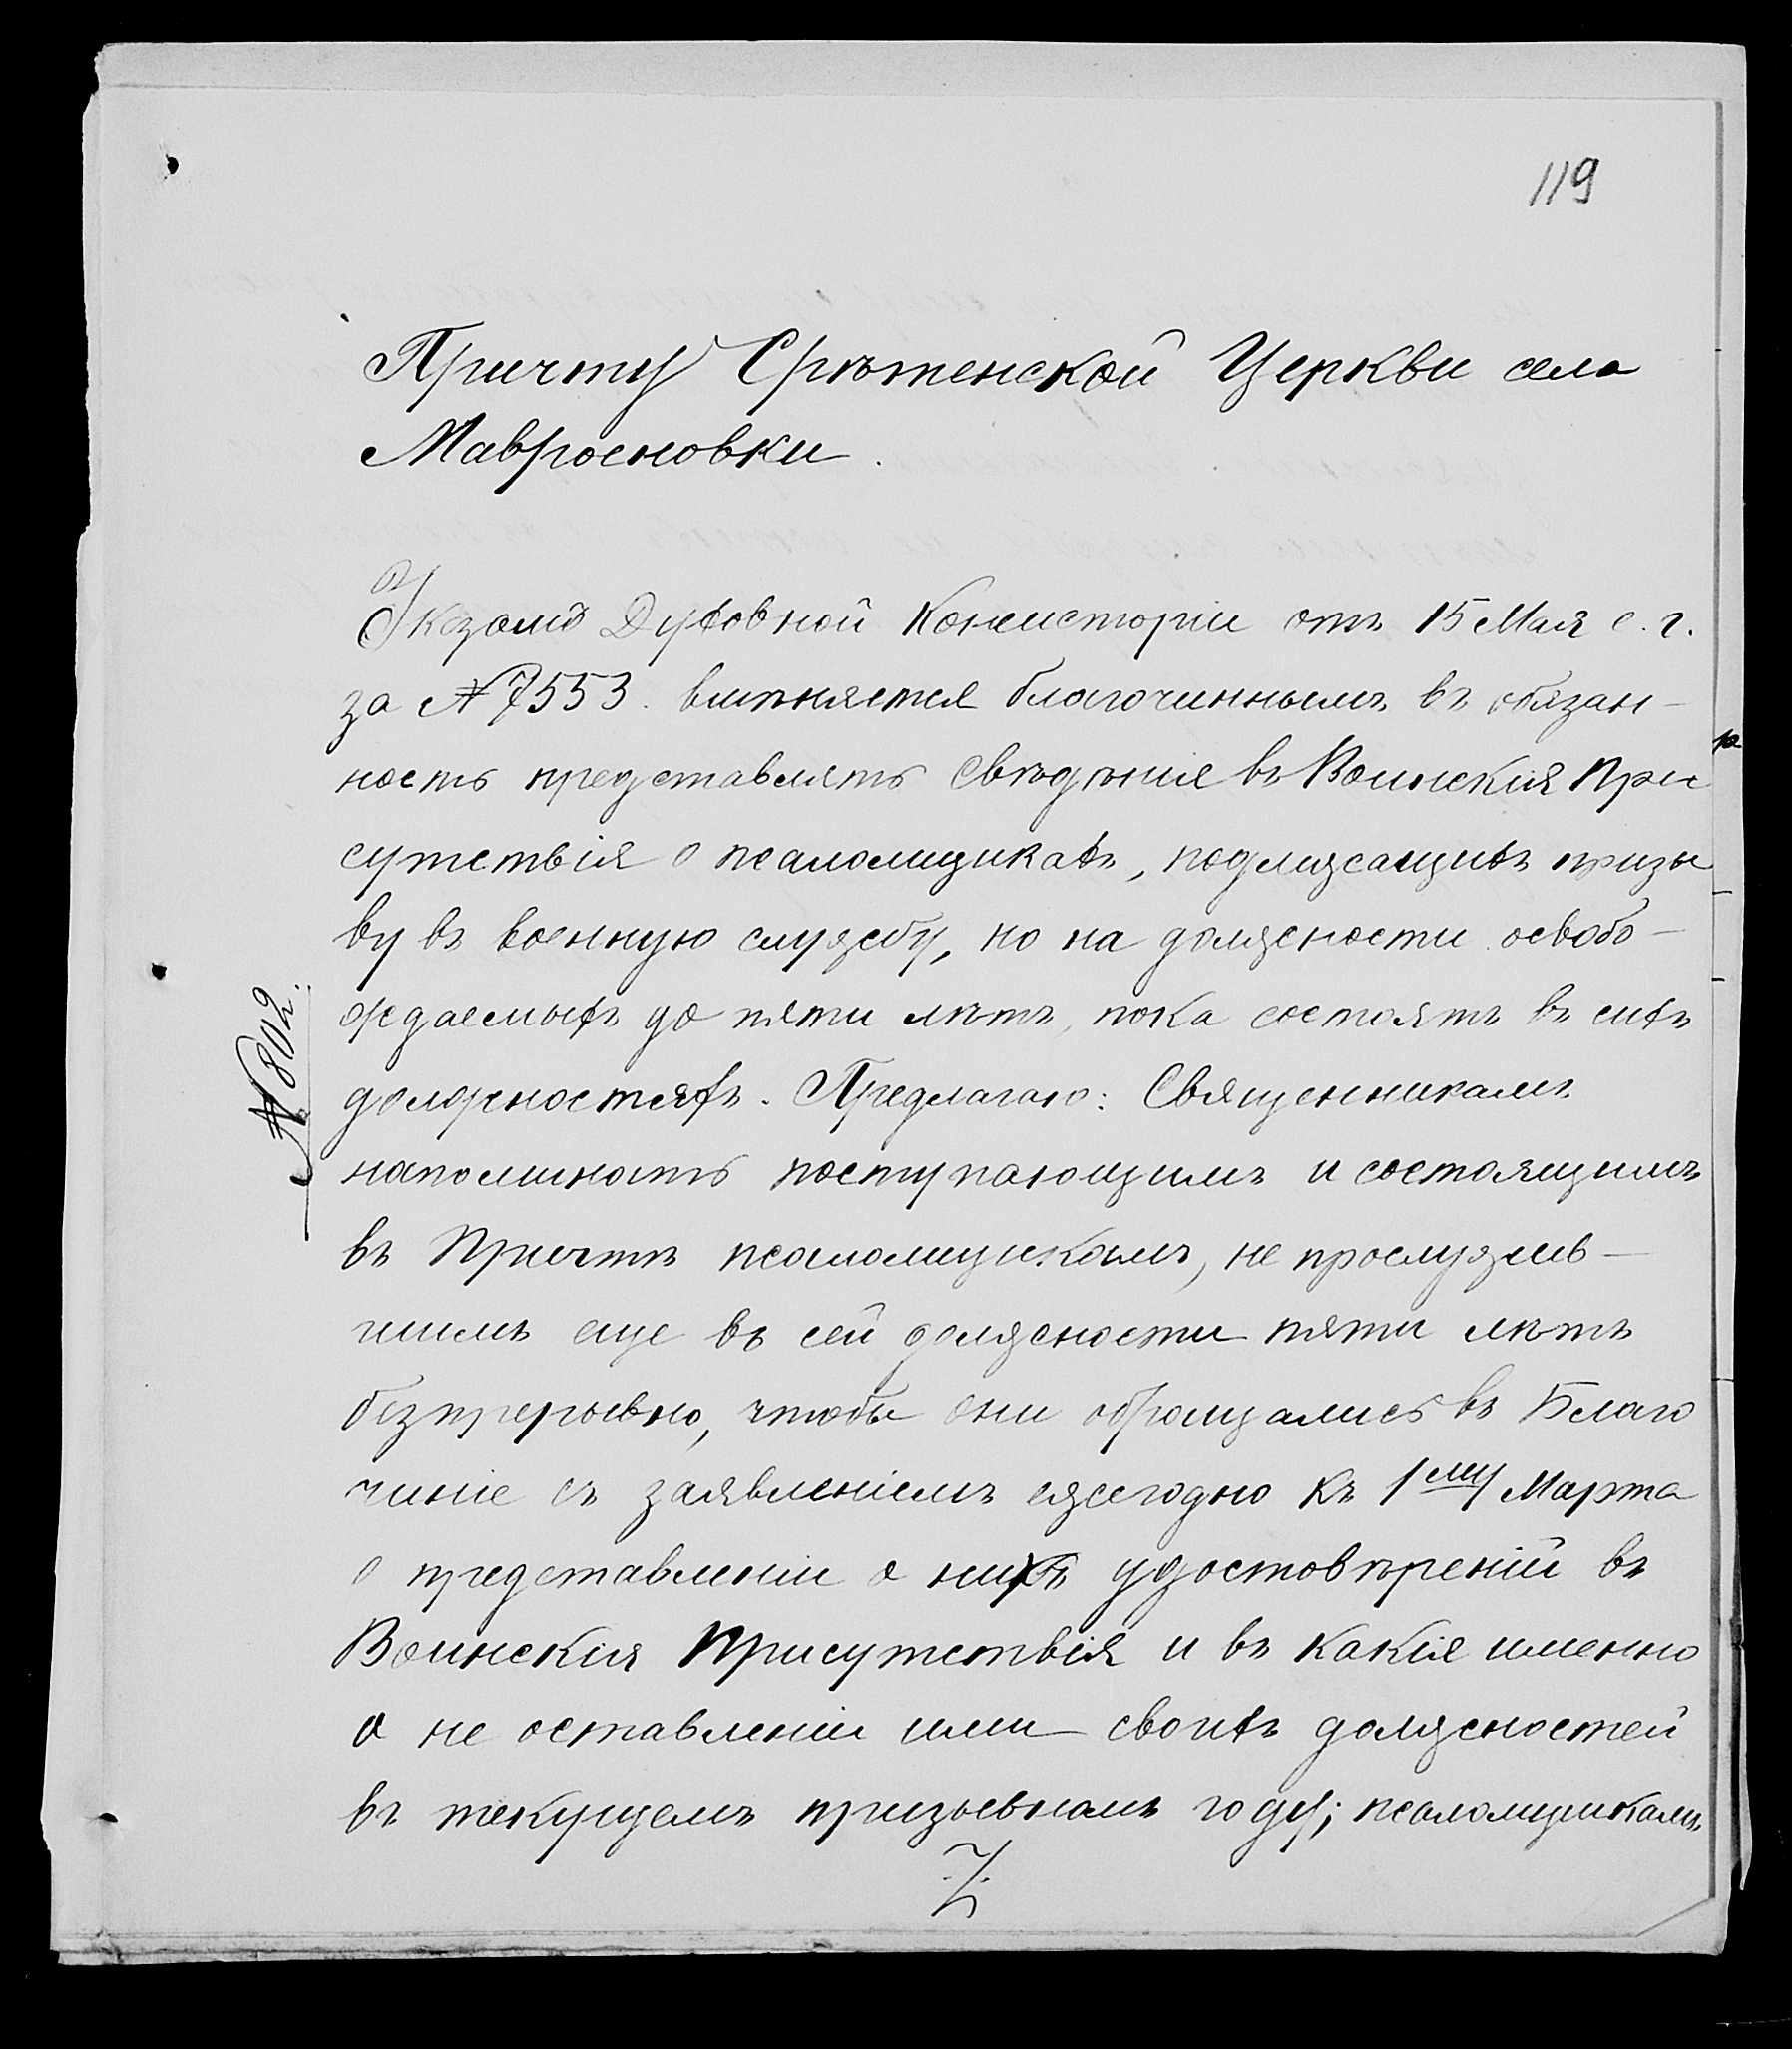 119
Причту Срѣтенской Церкви села
Мавроеновки.
Указомъ Духовной Консисторіи отъ 15 Мая с. г.
за № 7553. вмѣняется благочиннымъ въ обязан-
ность представлять свѣдѣнія въ Воинскія При
сутствія о псаломщикахъ, подлежащихъ призы
ву въ военную службу, но на должности освобо-
ждаемыхъ до пяти лѣтъ, пока состоятъ въ сихъ
должностяхъ. Предлагаю: Священникамъ
напоминать поступающимъ и состоящимъ
въ Причтѣ псаломщикамъ, не прослужив-
шимъ еще въ сей должности пяти лѣтъ
безпрерывно, чтобы они обращались въ Благо
чиніе съ заявленіемъ ежегодно къ 1му Марта
о представленіи о нихъ удостовѣреній въ
Воинскія Присутствія и въ какія именно
о не оставленіи ими своихъ должностей
въ текущемъ призывномъ году; псаломщикамъ
№ 802.